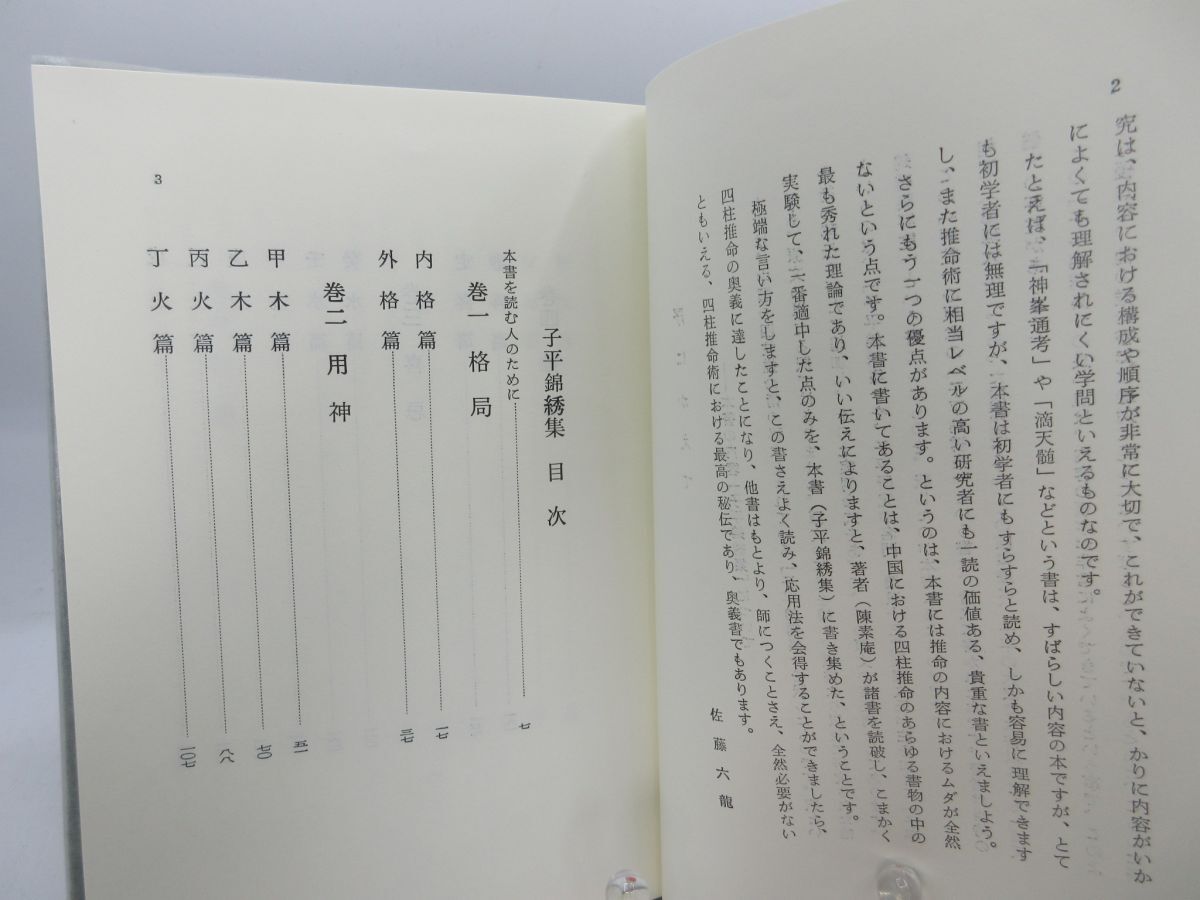 2
究は、内容における構成や順序が非常に大切で、これができていないと、かりに内容がいか
によくても理解されにくい学問といえるものなのです。
たとえば、「神峯通考」や「滴天髄」などという書は、すばらしい内容の本ですが、とて
も初学者には無理ですが、本書は初学者にもすらすらと読め、しかも容易に理解できます
し、また推命術に相当レベルの高い研究者にも一読の価値ある、貴重な書といえましよう。
さらにもう一つの優点があります。というのは、本書には推命の内容におけるムダが全然
ないという点です。本書に書いてあることは、中国における四柱推命のあらゆる書物の中の
最も秀れた理論であり、いい伝えによりますと、著者（陳素庵）が諸書を読破し、こまかく
実験して、一番適中した点のみを、本書（子平錦綉集）に書き集めた、ということです。
極端な言い方をしますと、この書さえよく読み、応用法を会得することができましたら、
四柱推命の奥義に達したことになり、他書はもとより、師につくことさえ、全然必要がない
ともいえる、四柱推命術における最高の秘伝であり、奥義書でもあります。
佐藤六龍
子平錦綉集 目次
本書を読む人のために 七
巻一 格局
内格篇 一七
外格篇 三七
巻二 用神
甲木篇 五一
乙木篇 七〇
丙火篇 八八
丁火篇 一〇七
3